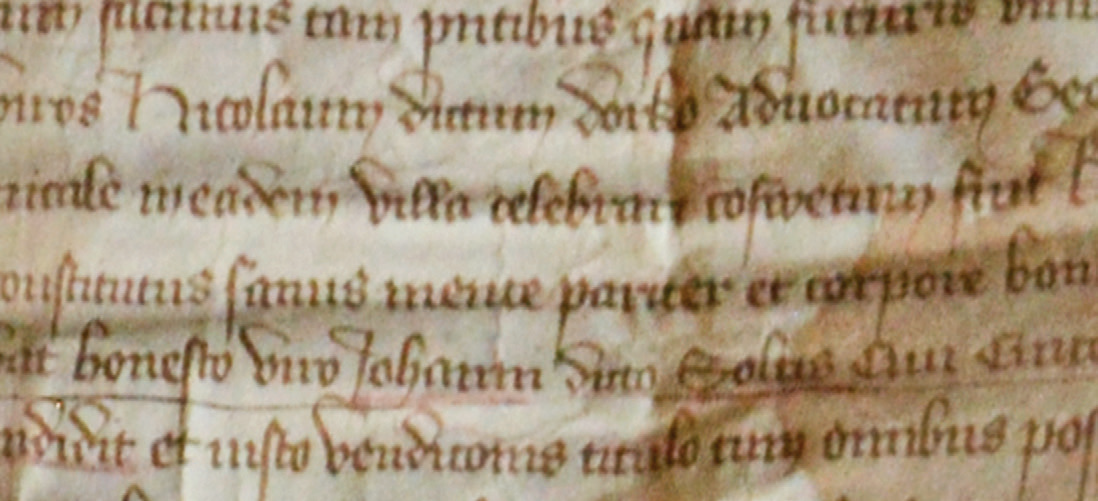 facimus tam pntibus quam futuris
viros Nicolaum dictum dorko Advocatum
meadem villa celebrari coswetum fuit
constitutus sanus mente pariter et corpore bon
honesto viro Johanni dicto Solus Civi
vendidit et iusto vendiconis titulo cum omnibus pos